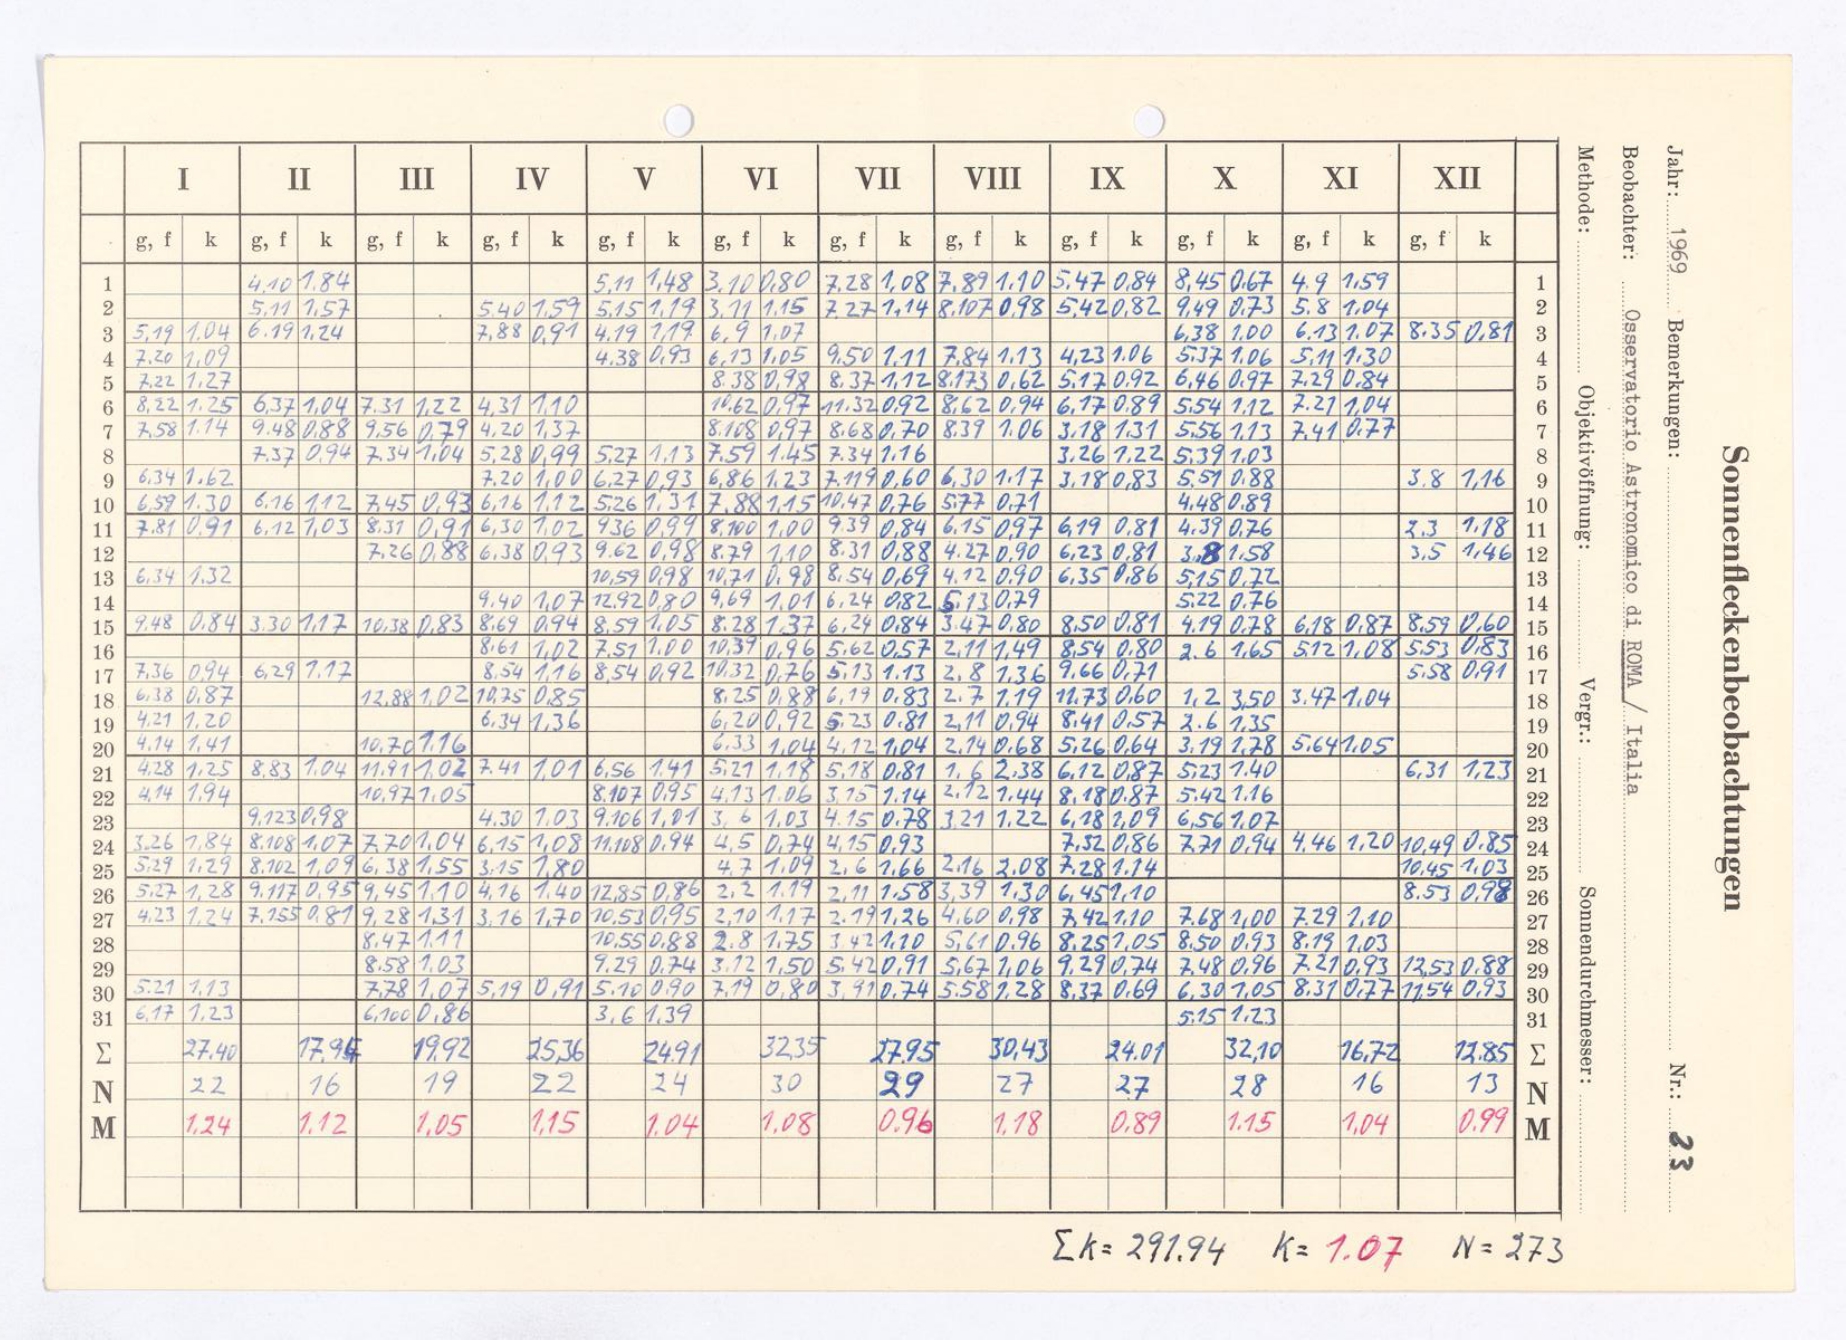 I II III IV V VI VII VIII IX X XI XII
g, f k g, f k g, f k g, f k g, f k g, f k g, f k g, f k g, f k g, f k g, f k g, f k
1 4.10 1.84 5.11 1.48 3.10 0.80 7.28 1.08 7.89 1.10 5.47 0.84 8,45 0.67 4.9 1.59 1
2 5.11 1.57 5.40 1.59 5.15 1.19 3.11 1.15 7.27 1.14 8.107 0.98 5,42 0,82 9,49 0.73 5.8 1.04 2
3 5,19 1.04 6.19 1.24 7,88 0,91 4.19 1.19 6,9 1.07 6,38 1.00 6.13 1.07 8.35 0,81 3
4 7.20 1,09 4.38 0,93 6,13 1.05 9.50 1.11 7,84 1.13 4,23 1.06 5.37 1.06 5,11 1.30 4
5 7.22 1,27 8.38 0,98 8.37 1,12 8.173 0,62 5.17 0.92 6,46 0.97 7.29 0,84 5
6 8,22 1.25 6,37 1,04 7.31 1,22 4,31 1.10 10,62 0,97 11.32 0,92 8,62 0,94 6,17 0.89 5.54 1.12 7.21 1,04 6
7 7,58 1.14 9.48 0,88 9,56 0,79 4.20 1,37 8.108 0,97 8.68 0,70 8.39 1.06 3.18 1.31 5,56 1,13 7,41 0.77 7
8 7.37 0,94 7.34 1,04 5,28 0,99 5,27 1,13 7.59 1.45 7.34 1.16 3.26 1.22 5.39 1.03 8
9 6,34 1.62 7.20 1,00 6.27 0,93 6,86 1.23 7.119 0,60 6,30 1.17 3,18 0,83 5,51 0.88 3.8 1,16 9
10 6,59 1.30 6,16 1,12 7,45 0,93 6,16 1,12 5,26 1,31 7,88 1,15 10,47 0,76 5,77 0,71 4.48 0.89 10
11 7,81 0,91 6,12 1,03 8.31 0,91 6,30 1,02 9.36 0,99 8,100 1,00 9.39 0,84 6,15 0,97 6,19 0.81 4.39 0.76 2.3 1.18 11
12 7.26 0,88 6,38 0,93 9.62 0,98 8.79 1,10 8.31 0,88 4.27 0,90 6,23 0,81 3.8 1.58 3,5 1,46 12
13 6,34 1,32 10,59 0,98 10,71 0,98 8,54 0,69 4.12 0,90 6,35 0,86 5,15 0,72 13
14 9,40 1,07 12.92 0,80 9,69 1,01 6.24 0,82 5.13 0,79 5.22 0.76 14
15 9,48 0,84 3.30 1,17 10,38 0,83 8.69 0,94 8,59 1,05 8.28 1.37 6,24 0,84 3.47 0,80 8,50 0,81 4.19 0,78 6,18 0,87 8.59 0,60 15
16 8,61 1,02 7,51 1,00 10,39 0,96 5.62 0,57 2,11 1,49 8,54 0,80 2.6 1,65 5,12 1,08 5,53 0,83 16
17 7,36 0,94 6,29 1.17 8,54 1,16 8,54 0,92 10.32 0,76 5,13 1.13 2,8 1.36 9.66 0,71 5,58 0,91 17
18 6,38 0,87 12,88 1,02 10,75 0,85 8,25 0,88 6,19 0,83 2.7 1.19 11.73 0,60 1,2 3,50 3.47 1.04 18
19 4.21 1,20 6.34 1,36 6,20 0,92 5.23 0.81 2,11 0,94 8,41 0,57 2.6 1,35 19
20 4.14 1,41 10,70 1,16 6.33 1,04 4.12 1,04 2.14 0,68 5,26 0,64 3,19 1,78 5,64 1,05 20
21 4.28 1,25 8,83 1,04 11,91 1,02 7.41 1,01 6,56 1,41 5.21 1,18 5,18 0,81 1,6 2.38 6,12 0,87 5,23 1.40 6,31 1,23 21
22 4,14 1,94 10,97 1,05 8.107 0,95 4.13 1.06 3,15 1.14 2.12 1,44 8,18 0.87 5,42 1.16 22
23 9.123 0,98 4.30 1.03 9.106 1,01 3,6 1,03 4.15 0.78 3,21 1.22 6,18 1,09 6,56 1,07 23
24 3.26 1,84 8.108 1,07 7.70 1,04 6,15 1,08 11.108 0,94 4,5 0,74 4,15 0,93 7.32 0,86 7.71 0,94 4,46 1,20 10,49 0.85 24
25 5.29 1,29 8.102 1,09 6,38 1,55 3.15 1,80 4,7 1.09 2,6 1,66 2,16 2,08 7.28 1.14 10,45 1.03 25
26 5.27 1,28 9.117 0,95 9,45 1,10 4,16 1.40 12,85 0,86 2.2 1.19 2,11 1.58 3,39 1.30 6,45 1,10 8.53 0,98 26
27 4.23 1,24 7,155 0,81 9,28 1,31 3.16 1,70 10,53 0,95 2,10 1,17 2.19 1,26 4.60 0,98 7,42 1.10 7.68 1,00 7.29 1,10 27
28 8.47 1.11 10.55 0,88 2.8 1,75 3.42 1.10 5,61 0.96 8.25 1,05 8,50 0,93 8.19 1.03 28
29 8.58 1.03 9.29 0.74 3.12 1,50 5.42 0,91 5,67 1,06 9.29 0,74 7.48 0,96 7.21 0,93 12,53 0.88 29
30 5.21 1,13 7,78 1,07 5,19 0,91 5.10 0,90 7,19 0,80 3,91 0.74 5.58 1.28 8,37 0.69 6,30 1,05 8.31 0,77 11,54 0,93 30
31 6,17 1,23 6,100 0,86 3.6 1.39 5,15 1,23 31
Σ 27.40 17.94 19,92 25,36 24.91 32,35 27.95 30,43 24.01 32,10 16,72 12.85 Σ
N 22 16 19 22 24 30 29 27 27 28 16 13 N
M 1.24 1.12 1,05 1,15 1.04 1,08 0.96 1.18 0.89 1.15 1,04 0.99 M
Σ K = 291.94 K = 1.07 N = 273
Sonnenfleckenbeobachtungen
Jahr: 1969 Bemerkungen: Nr.: 23
Beobachter: Osservatorio Astronomico di ROMA / Italia
Methode: Objektivöffnung: Vergr.: Sonnendurchmesser: